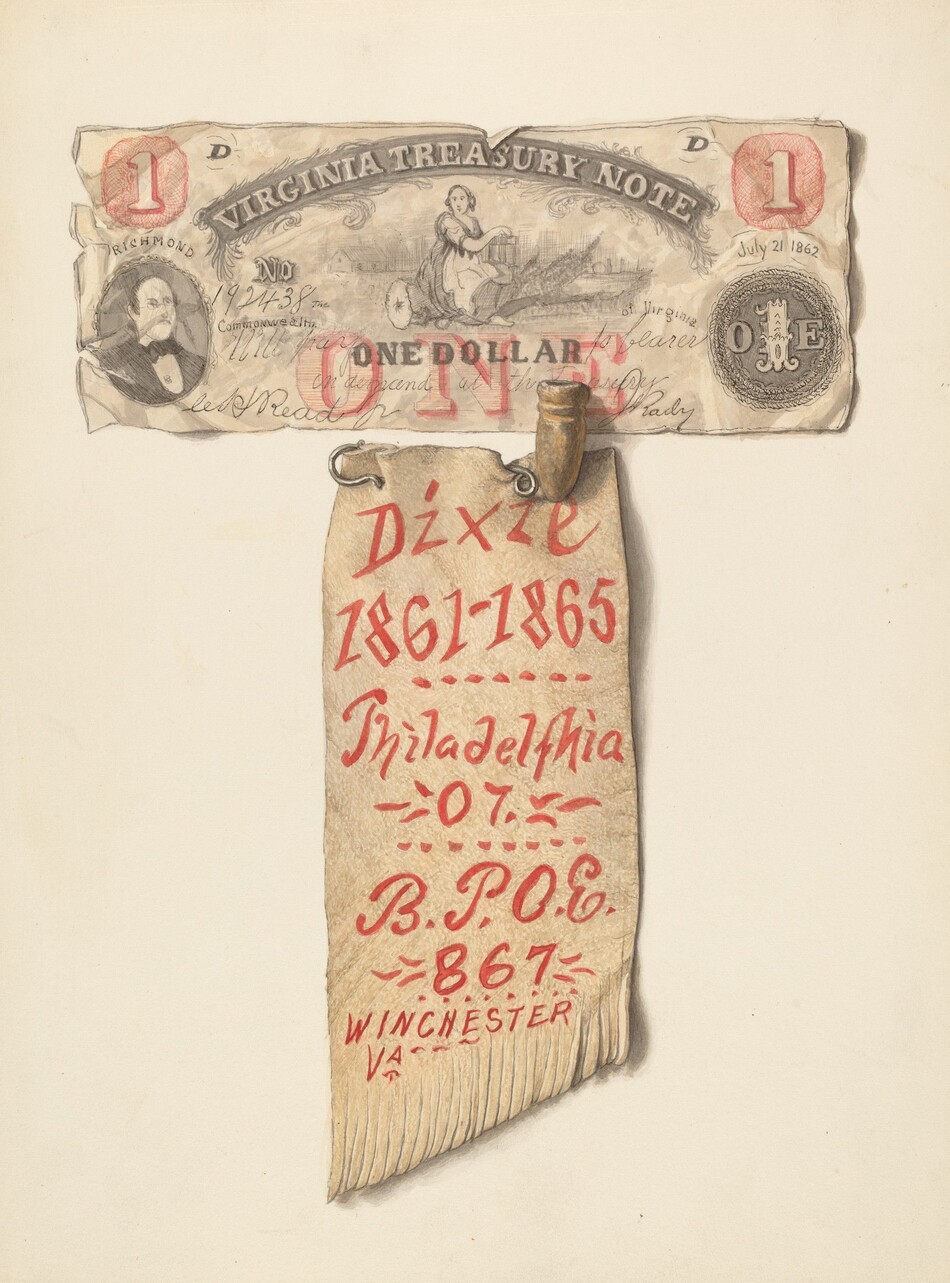 1 D VIRGINIA TREASURY NOTE D 1
RICHMOND July 21 1862
No
192438 The
Commonwealth of Virginia
Will pay ONE DOLLAR to bearer
O 1 E
ONE
on demand at the Treasury
Dixie
1861-1865
Philadelphia
07.
B.P.O.E.
867
WINCHESTER
VA